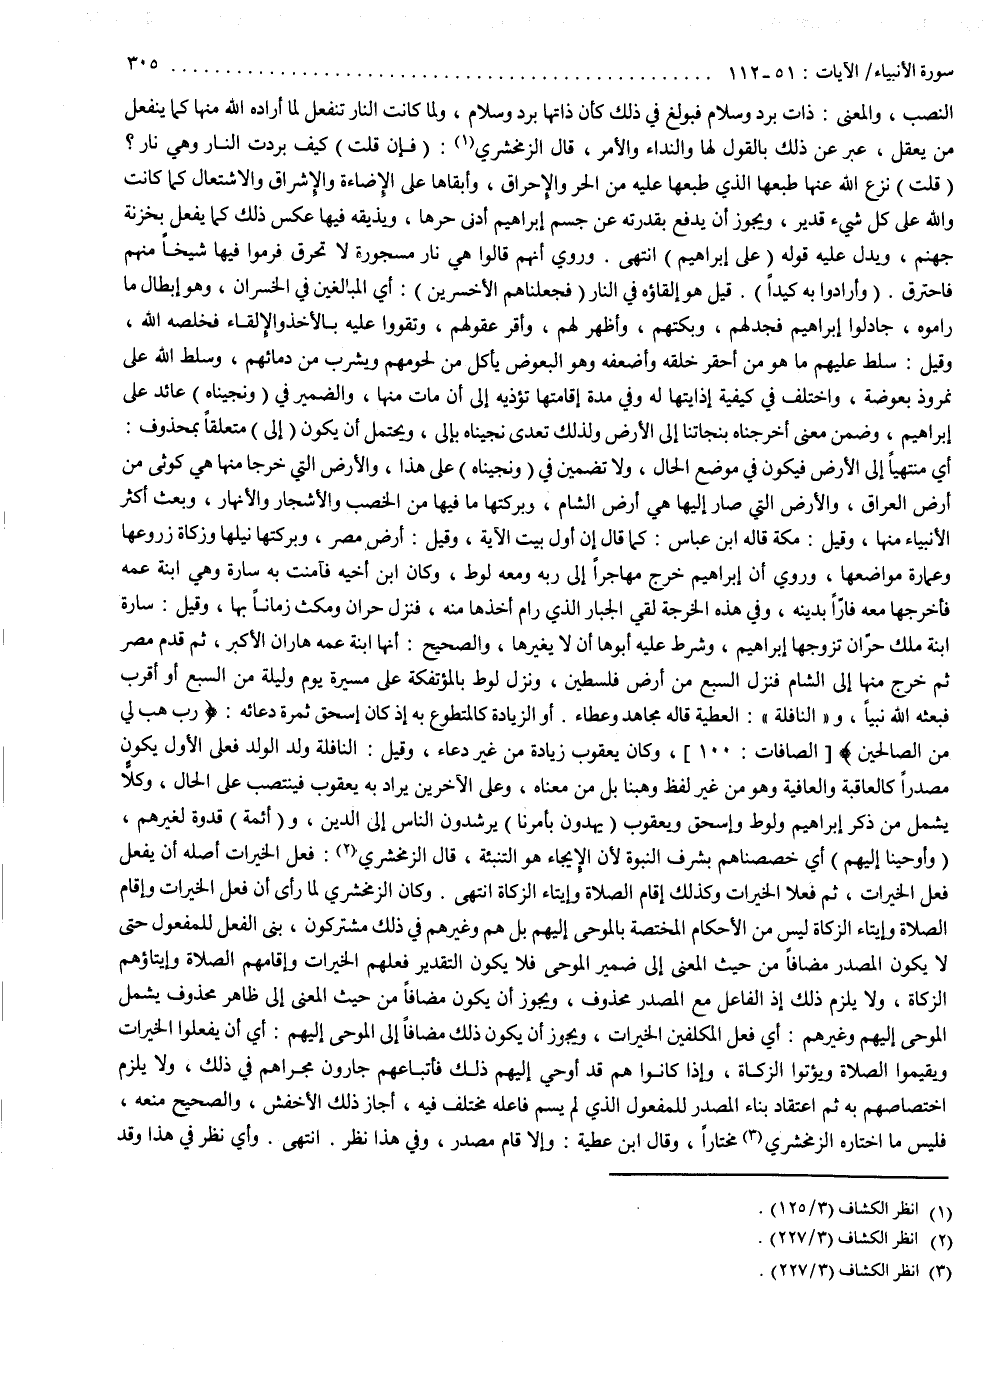 سورة الأنبياء/ الآيات : ٥١-١١٢ ........................................ ٣٠٥
النصب ، والمعنى : ذات برد وسلام فبولغ في ذلك كأن ذاتها برد وسلام ، ولما كانت النار تنفعل لما أراده الله منها كما ينفعل
من يعقل ، عبر عن ذلك بالقول لها والنداء والأمر ، قال الزمخشري(١) : ( فإن قلت ) كيف بردت النار وهي نار ؟
( قلت ) نزع الله عنها طبعها الذي طبعها عليه من الحر والإحراق ، وأبقاها على الإضاءة والإشراق والاشتعال كما كانت
والله على كل شيء قدير ، ويجوز أن يدفع بقدرته عن جسم إبراهيم أدنى حرها ، ويذيقه فيها عكس ذلك كما يفعل بخزنة
جهنم ، ويدل عليه قوله ( على إبراهيم ) انتهى . وروي أنهم قالوا هي نار مسجورة لا تحرق فرموا فيها شيخاً منهم
فاحترق . ( وأرادوا به كيداً ) . قيل هو إلقاؤه في النار ( فجعلناهم الأخسرين ) : أي المبالغين في الخسران ، وهو إبطال ما
راموه ، جادلوا إبراهيم فجدلهم ، وبكتهم ، وأظهر لهم ، وأقر عقولهم ، وتقووا عليه بالأخذوالإلقاء فخلصه الله ،
وقيل : سلط عليهم ما هو من أحقر خلقه وأضعفه وهو البعوض يأكل من لحومهم ويشرب من دمائهم ، وسلط الله على
نمروذ بعوضة ، واختلف في كيفية إذايتها له وفي مدة إقامتها تؤذيه إلى أن مات منها ، والضمير في ( ونجيناه ) عائد على
إبراهيم ، وضمن معنى أخرجناه بنجاتنا إلى الأرض ولذلك تعدى نجيناه بإلى ، ويحتمل أن يكون ( إلى ) متعلقاً بمحذوف :
أي منتهياً إلى الأرض فيكون في موضع الحال ، ولا تضمين في ( ونجيناه ) على هذا ، والأرض التي خرجا منها هي كوثى من
أرض العراق ، والأرض التي صار إليها هي أرض الشام ، وبركتها ما فيها من الخصب والأشجار والأنهار ، وبعث أكثر
الأنبياء منها ، وقيل : مكة قاله ابن عباس : كما قال إن أول بيت الآية ، وقيل : أرض مصر ، وبركتها نيلها وزكاة زروعها
وعمارة مواضعها ، وروي أن إبراهيم خرج مهاجراً إلى ربه ومعه لوط ، وكان ابن أخيه فآمنت به سارة وهي ابنة عمه
فأخرجها معه فارّاً بدينه ، وفي هذه الخرجة لقي الجبار الذي رام أخذها منه ، فنزل حران ومكث زماناً بها ، وقيل : سارة
ابنة ملك حرّان تزوجها إبراهيم ، وشرط عليه أبوها أن لا يغيرها ، والصحيح : أنها ابنة عمه هاران الأكبر ، ثم قدم مصر
ثم خرج منها إلى الشام فنزل السبع من أرض فلسطين ، ونزل لوط بالمؤتفكة على مسيرة يوم وليلة من السبع أو أقرب
فبعثه الله نبياً ، و« النافلة » : العطية قاله مجاهد وعطاء . أو الزيادة كالمتطوع به إذ كان إسحق ثمرة دعائه : ﴿ رب هب لي
من الصالحين ﴾ [ الصافات : ١٠٠ ] ، وكان يعقوب زيادة من غير دعاء ، وقيل : النافلة ولد الولد فعلى الأول يكون
مصدراً كالعاقبة والعافية وهو من غير لفظ وهبنا بل من معناه ، وعلى الآخرين يراد به يعقوب فينتصب على الحال ، وكلاًّ
يشمل من ذكر إبراهيم ولوط وإسحق ويعقوب ( يهدون بأمرنا ) يرشدون الناس إلى الدين ، و( أئمة ) قدوة لغيرهم ،
( وأوحينا إليهم ) أي خصصناهم بشرف النبوة لأن الإيحاء هو التنبئة ، قال الزمخشري(٢) : فعل الخيرات أصله أن يفعل
فعل الخيرات ، ثم فعلا الخيرات وكذلك إقام الصلاة وإيتاء الزكاة انتهى . وكان الزمخشري لما رأى أن فعل الخيرات وإقام
الصلاة وإيتاء الزكاة ليس من الأحكام المختصة بالموحى إليهم بل هم وغيرهم في ذلك مشتركون ، بنى الفعل للمفعول حتى
لا يكون المصدر مضافاً من حيث المعنى إلى ضمير الموحى فلا يكون التقدير فعلهم الخيرات وإقامهم الصلاة وإيتاؤهم
الزكاة ، ولا يلزم ذلك إذ الفاعل مع المصدر محذوف ، ويجوز أن يكون مضافاً من حيث المعنى إلى ظاهر محذوف يشمل
الموحى إليهم وغيرهم : أي فعل المكلفين الخيرات ، ويجوز أن يكون ذلك مضافاً إلى الموحى إليهم : أي أن يفعلوا الخيرات
ويقيموا الصلاة ويؤتوا الزكاة ، وإذا كانوا هم قد أوحي إليهم ذلك فأتباعهم جارون مجراهم في ذلك ، ولا يلزم
اختصاصهم به ثم اعتقاد بناء المصدر للمفعول الذي لم يسم فاعله مختلف فيه ، أجاز ذلك الأخفش ، والصحيح منعه ،
فليس ما اختاره الزمخشري(٣) مختاراً ، وقال ابن عطية : وإلا قام مصدر ، وفي هذا نظر . انتهى . وأي نظر في هذا وقد
(١) انظر الكشاف (١٢٥/٣) .
(٢) انظر الكشاف (٢٢٧/٣) .
(٣) انظر الكشاف (٢٢٧/٣) .